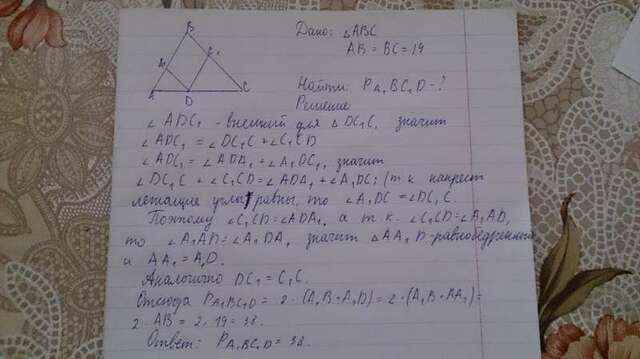 B
A₁
C₁
A
D
C
Дано: △ABC
AB = BC = 19
Найти: P A₁BC₁D - ?
Решение
∠ADC₁ - внешний для △DC₁C, значит
∠ADC₁ = ∠DC₁C + ∠C₁CD
∠ADC₁ = ∠ADA₁ + ∠A₁DC₁, значит
∠DC₁C + ∠C₁CD = ∠ADA₁ + ∠A₁DC₁ (т.к. накрест
лежащие углы равны, то ∠A₁DC = ∠DC₁C.
Поэтому ∠C₁CD = ∠ADA₁, а т.к. ∠C₁CD = ∠A₁AD,
то ∠A₁AD = ∠A₁DA, значит △AA₁D - равнобедренного
и AA₁ = A₁D.
Аналогично DC₁ = C₁C.
Отсюда P A₁BC₁D = 2 · (A₁B + A₁D) = 2 · (A₁B + AA₁) =
2 · AB = 2 · 19 = 38.
Ответ: P A₁BC₁D = 38.